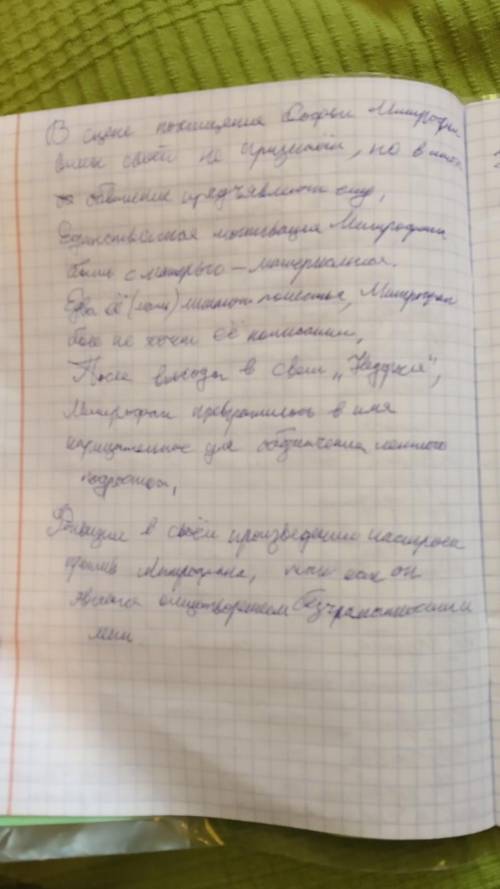 В сцене похищения Софьи Митрофан
вины своей не признаёт, но в итоге
обвинение предъявляют ему.
Единственная мотивация Митрофана
быть с матерью – материальная.
Едва её (мать) лишают поместья, Митрофан
более не хочет её
После выхода в свет „Недоросля",
Митрофан превратилось в имя
нарицательное для обозначения ленивого
подростка.
Фонвизин в своём произведении настроен
против Митрофана, так как он
является олицетворением безграмотности и
лени